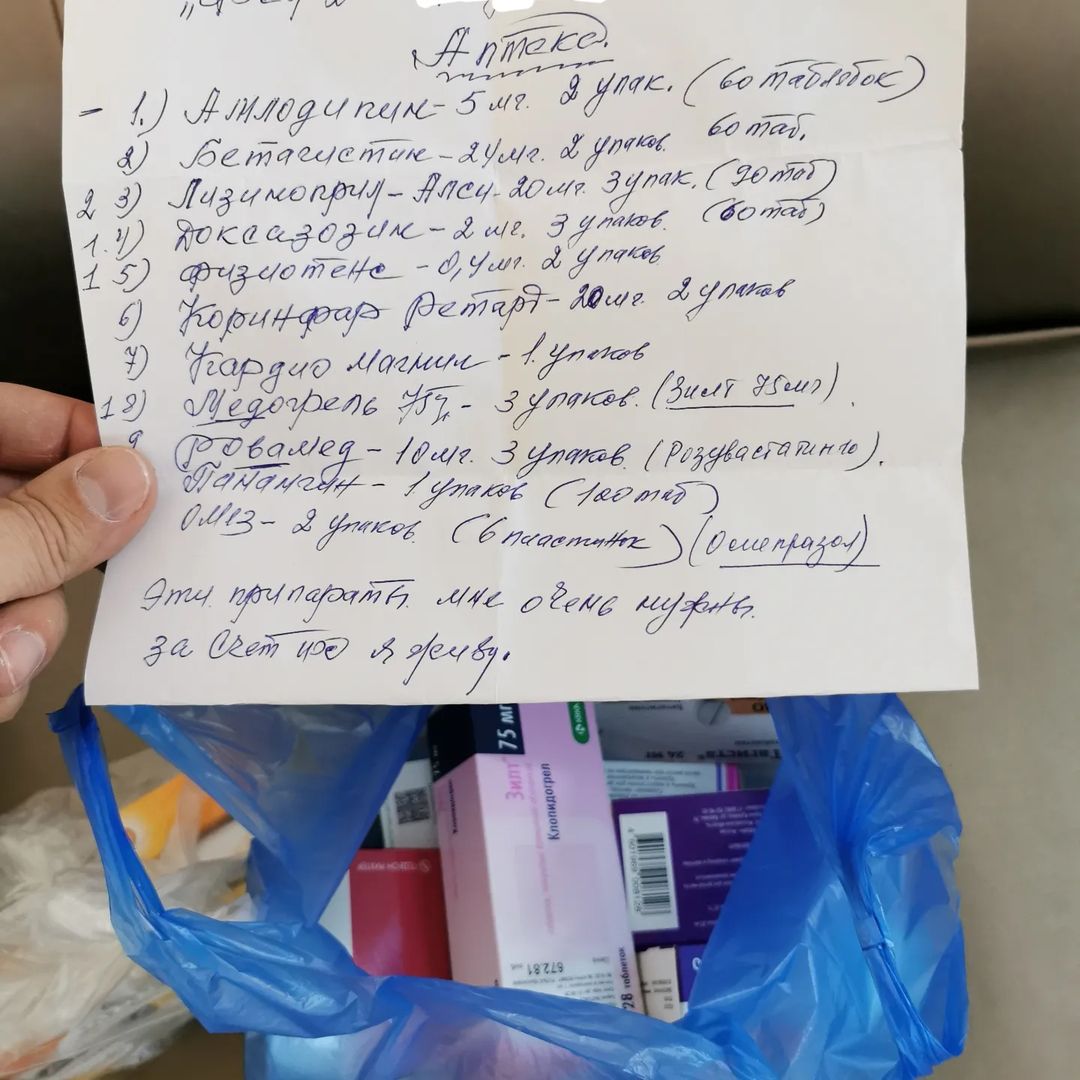 Аптека.
- 1.) Амлодипин - 5 мг. 2 упак. (60 таблеток)
2) Бетагистин - 24 мг. 2 упаков. 60 таб.
2 3) Лизиноприл - Алси - 20 мг. 3 упак. (90 таб)
1. 4) Доксазозин - 2 мг. 3 упаков. (60 таб)
1 5) Физиотенс - 0,4 мг. 2 упаков
6) Коринфар Ретард - 20 мг. 2 упаков
7) Кардио магнил - 1. упаков
1 8) Медогрель 75 - 3 упаков. (Зилт 75 мг)
9 Ровамед - 10 мг. 3 упаков. (Розувастатин)
Панангин - 1 упаков (100 таб)
Омез - 2 упаков. (6 пластинок) (Омепразол)
Эти препараты мне очень нужны.
за счет их я живу.
75 мг
Зилт
Клопидогрел
672.81
28 таблеток
24 мг
ГЕДЕОН РИХТЕР